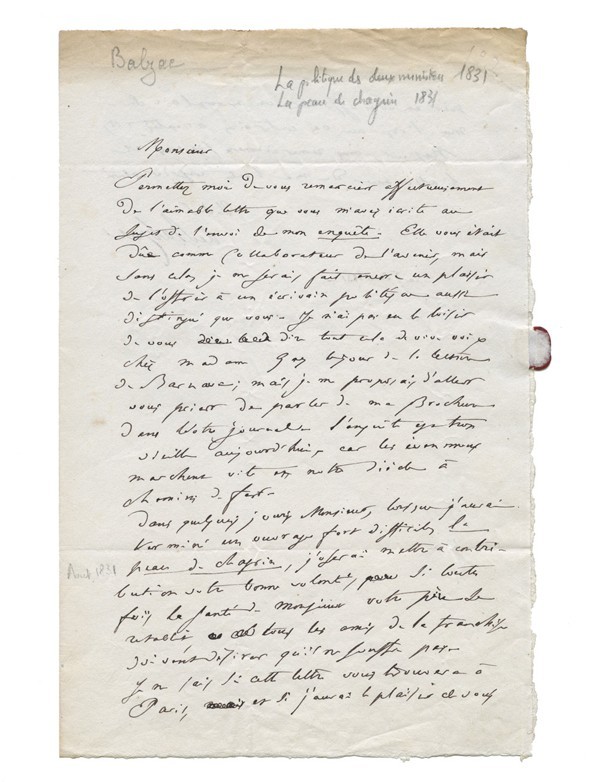 Balzac
La politique des deux ministères 1831
La peau de chagrin 1831
Monsieur
Permettez moi de vous remercier affectueusement
de l'aimable lettre que vous m'avez écrite au
sujet de l'envoi de mon enquête. Elle vous était
düe comme Collaborateur de l'avenir, mais
sans cela, je me serais fait encore un plaisir
de l'offrir à un écrivain politique aussi
distingué que vous. Je n'ai pas eu le loisir
de vous dire tout cela de vive voix
chez madame Gay le jour de la lecture
de Barnave; mais je me proposais d'aller
vous prier de parler de ma Brochure
dans votre journal. L'enquête est trop
vieille aujourd'hui, car les événemens
marchent vite en notre siècle à
chemins de fer.
Dans quelques jours Monsieur, lorsque j'aurai
terminé un ouvrage fort difficile, la
peau de chagrin, j'oserai mettre à contri-
bution votre bonne volonté, si toute
fois la santé de monsieur votre père se
rétablit tous les amis de la franchise
doivent désirer qu'il ne souffre pas.
Je ne sais si cette lettre vous trouvera à
Paris, et si j'aurai le plaisir de vous
Avril 1831